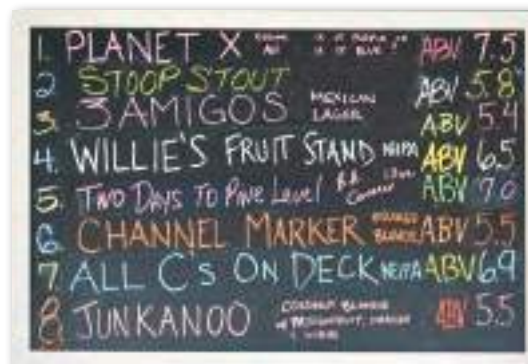 1. PLANET X ABV 7.5
2 STOOP STOUT ABV 5.8
3. 3 AMIGOS MEXICAN LAGER ABV 5.4
4. WILLIE'S FRUIT STAND NEIPA ABV 6.5
5. TWO DAYS TO PINE LEVEL ABV 7.0
6. CHANNEL MARKER ORANGE BLONDE ABV 5.5
7 ALL CS ON DECK NEIPA ABV 6.9
8 JUNKANOO COCONUT BLONDE ABV 5.5